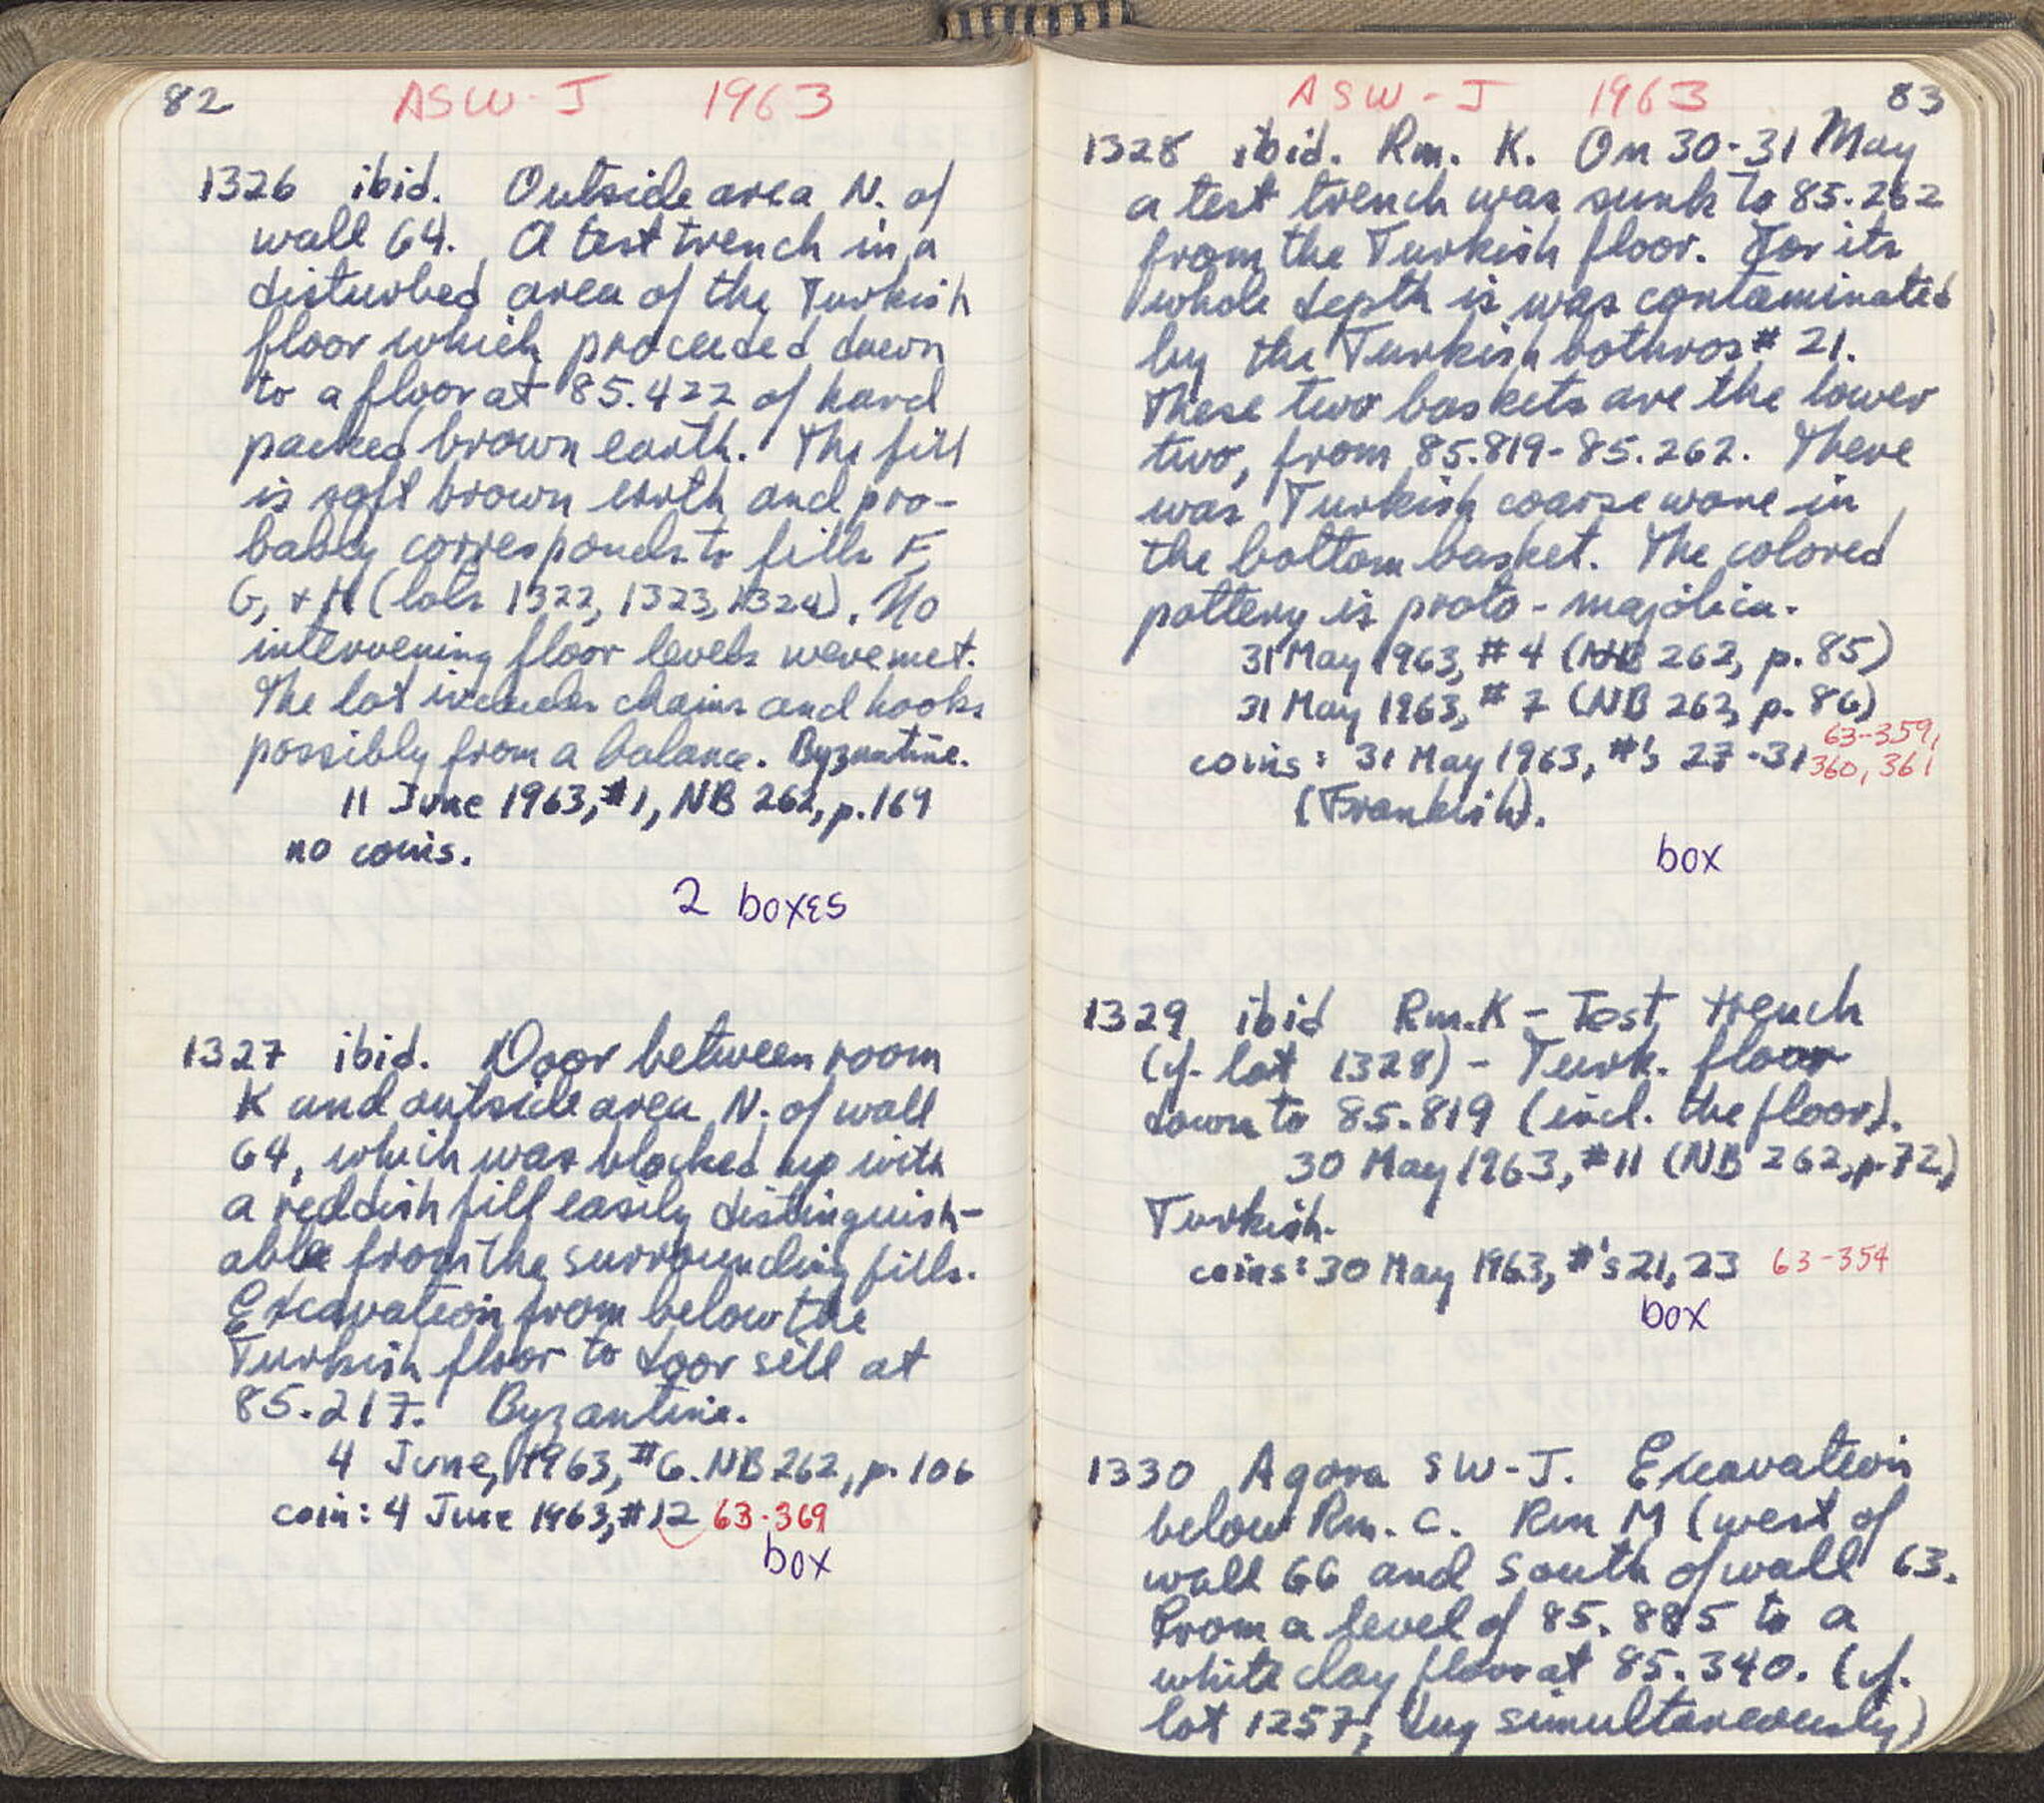 82
ASW-J 1963
1326 ibid. Outside area N. of
wall 64. A test trench in a
disturbed area of the Turkish
floor which proceeded down
to a floor at 85.422 of hard
packed brown earth. The fill
is soft brown earth and pro-
bably corresponds to fills F,
G, & H (lots 1322, 1323, 1324). No
intervening floor levels were met.
The lot includes chains and hooks
possibly from a balance. Byzantine.
11 June 1963, #1, NB 262, p.169
no coins.
2 boxes
1327 ibid. Door between room
K and outside area N. of wall
64, which was blocked up with
a reddish fill easily distinguish-
able from the surrounding fills.
Excavation from below the
Turkish floor to door sill at
85.217. Byzantine.
4 June, 1963, #6. NB 262, p. 106
coin: 4 June 1963, #12 63-369
box
ASW-J 1963 83
1328 ibid. Rm. K. On 30-31 May
a test trench was sunk to 85.262
from the Turkish floor. For its
whole depth is was contaminated
by the Turkish bothros # 21.
These two baskets are the lower
two, from 85.819-85.262. There
was Turkish coarse ware in
the bottom basket. The colored
pottery is proto-majolica.
31 May 1963, #4 (NB 262, p. 85)
31 May 1963, # 7 (NB 262, p. 86)
coins: 31 May 1963, #'s 27-31 63-359,
360, 361
(Frankish).
box
1329 ibid Rm.K - Test trench
(cf. lot 1328) - Turk. floor
down to 85.819 (incl. the floor).
30 May 1963, #11 (NB 262, p.72)
Turkish.
coins: 30 May 1963, #'s 21, 23 63-354
box
1330 Agora SW-J. Excavation
below Rm. C. Rm M (west of
wall 66 and south of wall 63.
From a level of 85.885 to a
white clay floor at 85.340. (cf.
lot 1257, dug simultaneously)